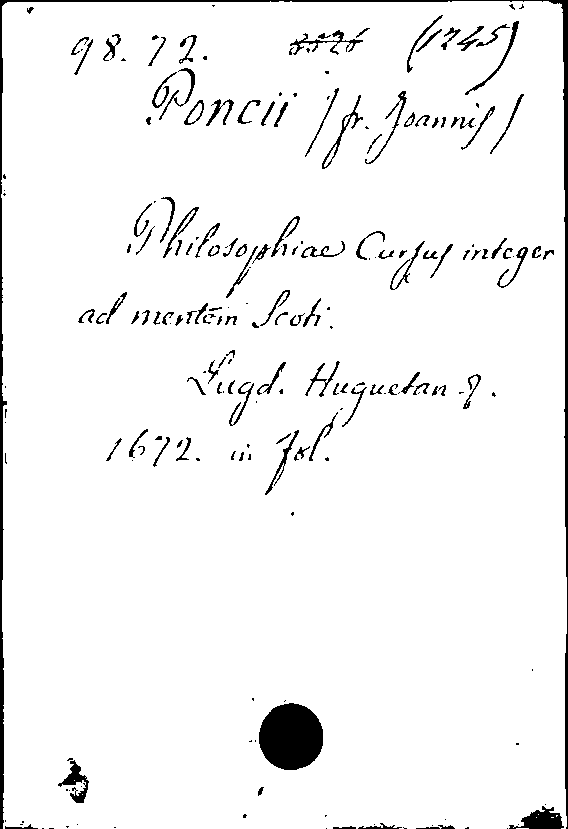 98. 72. (1245)
Poncii / fr. Joannis /
Philosophiae Cursus integer
ad mentem Scoti.
Lugd. Huguetan
1672. in fol.